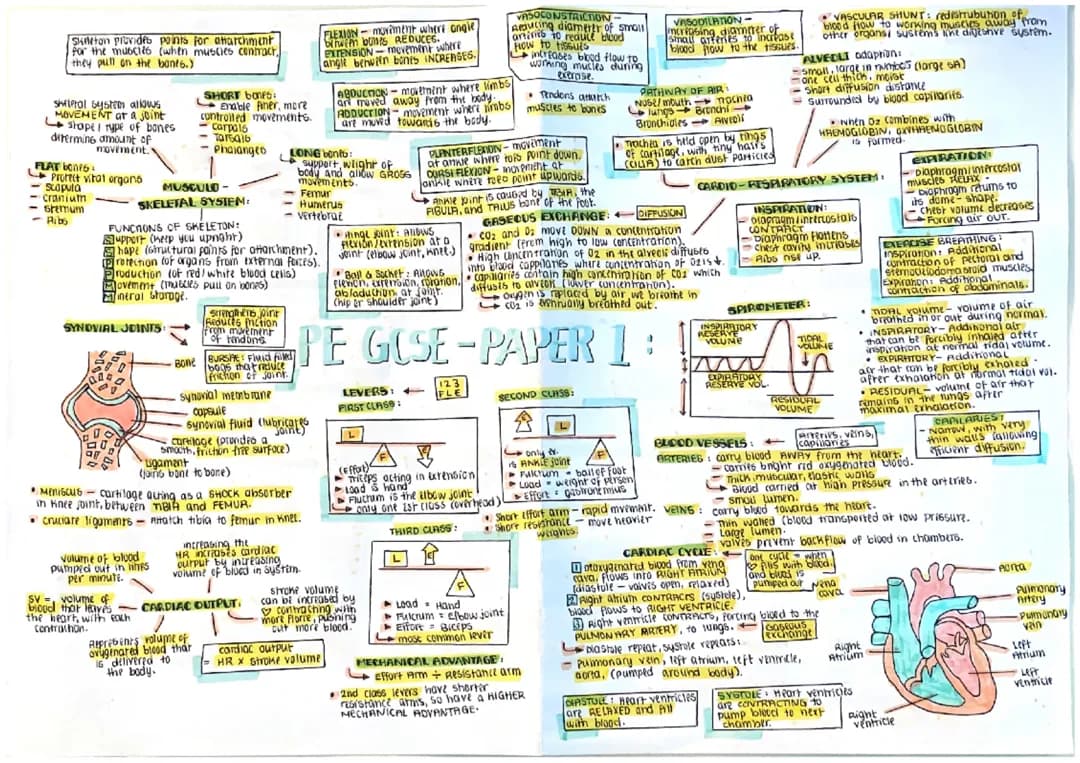 Skeleton provides points for attachment
for the muscles (when muscles contract,
they pull on the bones.)
FLEXION - movement where angle
between bones REDUCES.
EXTENSION - movement where
angle between bones INCREASES.
ABDUCTION - movement where limbs
are moved away from the body.
ADDUCTION - movement where limbs
are moved towards the body.
PLANTERFLEXION - movement
at ankle where toes point down.
DORSI FLEXION - movement at
ankle where toes point upwards.
Ankle joint is caused by TIBIA, the
FIBULA, and TALUS bone of the foot.
VASOCONSTRICTION -
reducing diameter of small
arteries to reduce blood
flow to tissues
increases blood flow to
working muscles during
exercise.
Tendons attach
muscles to bones
VASODILATION -
increasing diameter of
small arteries to increase
blood flow to the tissues.
VASCULAR SHUNT: redistribution of
blood flow to working muscles away from
other organs/systems like digestive system.
ALVEOLI adaption:
small, large in numbers (large SA)
one cell thick, moist
short diffusion distance
surrounded by blood capillaries.
PATHWAY OF AIR:
Nose/mouth → Trachea
→ lungs → Bronchi →
Bronchioles → Alveoli
Trachea is held open by rings
of cartilage, with tiny hairs
(CILIA) to catch dust particles
When O2 combines with
HAEMOGLOBIN, OXYHAEMOGLOBIN
is formed.
CARDIO-RESPIRATORY SYSTEM:
EXPIRATION:
Diaphragm/intercostal
muscles RELAX
Diaphragm returns to
its dome-shape.
Chest volume decreases
Forcing air OUT.
INSPIRATION:
Diaphragm/intercostals
CONTRACT
Diaphragm flattens
Chest cavity increases
Ribs rise up.
EXERCISE BREATHING:
Inspiration: Additional
contraction of pectoral and
sternocleidomastoid muscles.
Expiration: Additional
contraction of abdominals.
Skeletal system allows
MOVEMENT at a JOINT
shape/type of bones
determins amount of
movement.
SHORT bones:
enable finer, more
controlled movements.
carpals
Tarsals
Phalanges
FLAT bones:
Protect vital organs
scapula
cranium
sternum
Ribs
MUSCULO -
SKELETAL SYSTEM:
LONG bones:
support weight of
body and allow GROSS
movements.
Femur
Humerus
vertebrae
FUNCTIONS OF SKELETON:
Support (keep you upright)
Shape (structural points for attachment).
Protection (of organs from external forces).
Production (of red/white blood cells)
Movement (muscles pull on bones)
Mineral storage.
Hinge joint: allows
flexion/extension at a
joint (elbow joint, knee.)
Ball & Socket: Allows
flexion, extension, rotation,
ab/adduction at joint.
(hip or shoulder joint)
GASEOUS EXCHANGE: ← DIFFUSION
CO2 and O2 move DOWN a concentration
gradient (from high to low concentration).
High concentration of O2 in the alveoli diffuses
into blood capillaries where concentration of O2 is ↓.
Capillaries contain high concentration of CO2 which
diffuses to alveoli (lower concentration).
oxygen is replaced by air we breathe in
CO2 is eventually breathed out.
SYNOVIAL JOINTS:
strengthens joint
Reduces friction
from movement
of tendons.
BURSAE: Fluid filled
bags that reduce
friction of joint.
Bone
synovial membrane
capsule
synovial fluid (lubricates
joint)
cartilage (provides a
smooth, friction free surface)
Ligament
(joins bone to bone)
MENISCUS - cartilage acting as a SHOCK ABSORBER
in knee joint, between TIBIA and FEMUR.
cruciate ligaments - Attach tibia to femur in knee.
PE GCSE - PAPER 1 :
LEVERS: ← 1 2 3
F L E
FIRST CLASS:
L
F
E
(Effort)
Triceps acting in extension
Load is hand
Fulcrum is the elbow joint
only one 1st class (overhead)
SECOND CLASS:
E
L
F
only one
is ANKLE joint
Fulcrum = ball of foot
Load = weight of person
Effort = gastrocnemius
Short effort arm - rapid mvement.
Short resistance - move heavier
weights
THIRD CLASS:
L
E
F
Load = Hand
Fulcrum = elbow joint
Effort = Biceps
most common lever
MECHANICAL ADVANTAGE:
Effort Arm ÷ Resistance arm
2nd class levers have shorter
resistance arms, so have a HIGHER
MECHANICAL ADVANTAGE.
SPIROMETER:
INSPIRATORY
RESERVE
VOLUME
TIDAL
VOLUME
EXPIRATORY
RESERVE VOL.
RESIDUAL
VOLUME
TIDAL VOLUME - volume of air
breathed in or out during normal.
INSPIRATORY - Additional air
that can be forcibly inhaled after
inspiration at normal tidal volume.
EXPIRATORY - Additional
air that can be forcibly exhaled
after exhalation at normal tidal vol.
RESIDUAL - volume of air that
remains in the lungs after
maximal exhalation.
CAPILLARIES:
Narrow, with very
thin walls (allowing
efficient diffusion.
BLOOD VESSELS: ← Arteries, veins,
capillaries
ARTERIES: carry blood AWAY from the heart.
carries bright red oxygenated blood.
Thick muscular, elastic walls
Blood carried at high pressure in the arteries.
small lumen.
VEINS: carry blood towards the heart.
Thin walled (blood transported at low pressure.
Large lumen.
valves prevent backflow of blood in chambers.
CARDIAC CYCLE:
one cycle = when
fills with blood
and blood is
pumped out
1 Deoxygenated blood from vena
cava, flows into RIGHT ATRIUM
(diastole - valves open, relaxed)
2 Right atrium CONTRACTS (systole),
blood flows to RIGHT VENTRICLE.
3 Right ventricle CONTRACTS, forcing blood to the
PULMONARY ARTERY, to lungs. ← gaseous
exchange
Diastole repeat, systole repeats:
Pulmonary vein, left atrium, left ventricle,
aorta, (pumped around body).
DIASTOLE: Heart ventricles
are RELAXED and fill
with blood.
SYSTOLE: Heart ventricles
are CONTRACTING to
pump blood to next
chamber.
vena
cava
Aorta
Pulmonary
Artery
Pulmonary
vein
Left
Atrium
Left
ventricle
Right
Atrium
Right
ventricle
volume of blood
pumped out in litres
per minute.
increasing the
HR increases cardiac
output by increasing
volume of blood in system.
SV = volume of
blood that leaves
the heart, with each
contraction.
CARDIAC OUTPUT:
stroke volume
can be increased by
contracting with
more force, pushing
out more blood.
Represents volume of
oxygenated blood that
is delivered to
the body.
cardiac output
= HR x stroke volume